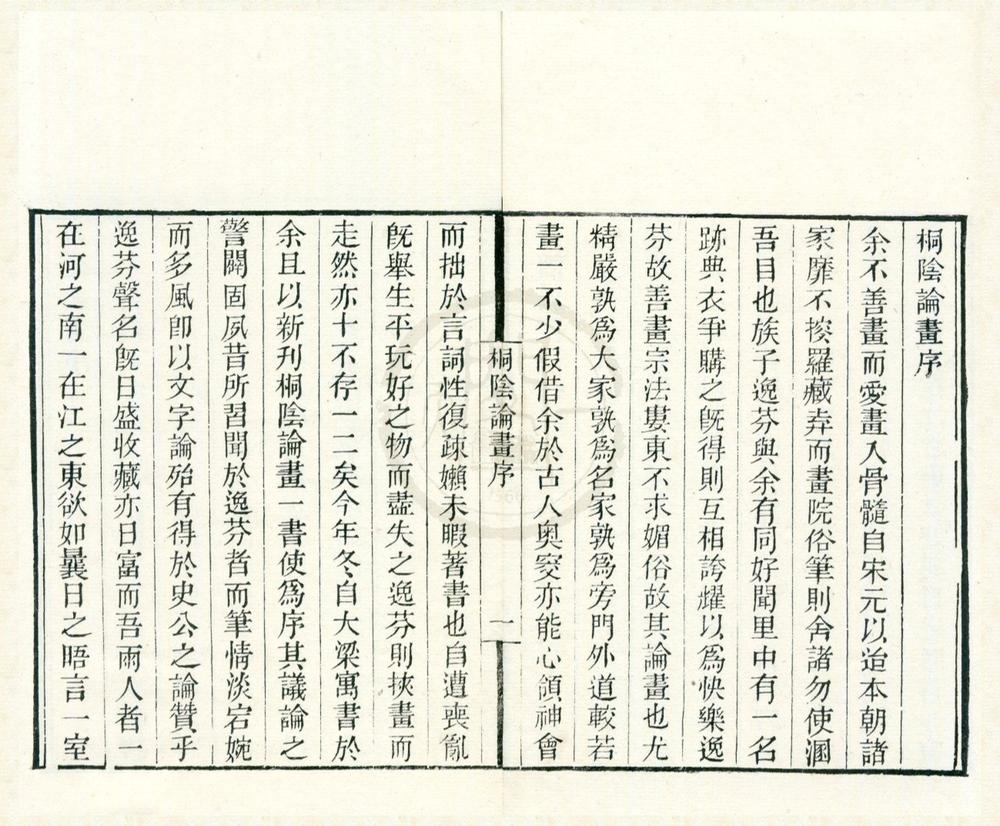 桐陰論畫序
余不善畫而愛畫入骨髓自宋元以迨本朝諸
家靡不搜羅藏弆而畫院俗筆則舍諸勿使溷
吾目也族子逸芬與余有同好聞里中有一名
跡典衣爭購之旣得則互相誇耀以爲快樂逸
芬故善畫宗法婁東不求媚俗故其論畫也尤
精嚴孰爲大家孰爲名家孰爲旁門外道較若
畫一不少假借余於古人奧窔亦能心領神會
桐陰論畫序
一
而拙於言詞性復疎嬾未暇著書也自遭喪亂
旣舉生平玩好之物而盡失之逸芬則挾畫而
走然亦十不存一二矣今年冬自大梁寓書於
余且以新刊桐陰論畫一書使爲序其議論之
警闢固夙昔所習聞於逸芬者而筆情淡宕婉
而多風卽以文字論殆有得於史公之論贊乎
逸芬聲名旣日盛收藏亦日富而吾兩人者一
在河之南一在江之東欲如曩日之晤言一室